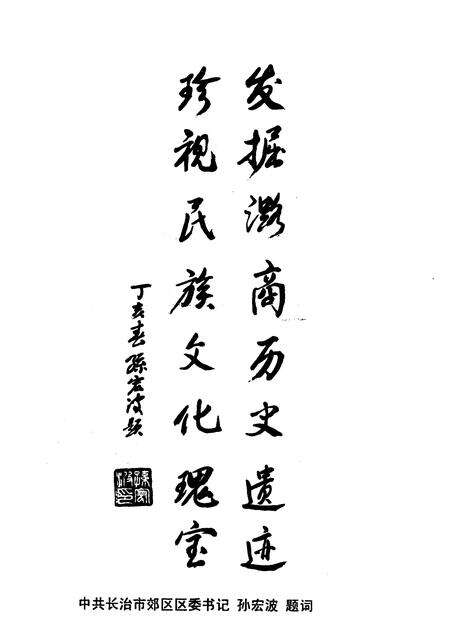 发掘潞商历史遗迹
珍视民族文化瑰宝
丁亥春 孙宏波题
中共长治市郊区区委书记 孙宏波 题词